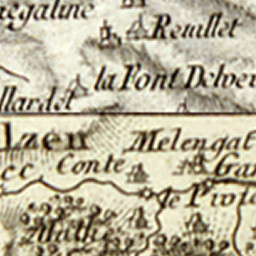 egaline
Reuillet
la Font Delve
llardet
lzen
Melengat
cc
Conte
Gar
le Pivle
Mathe